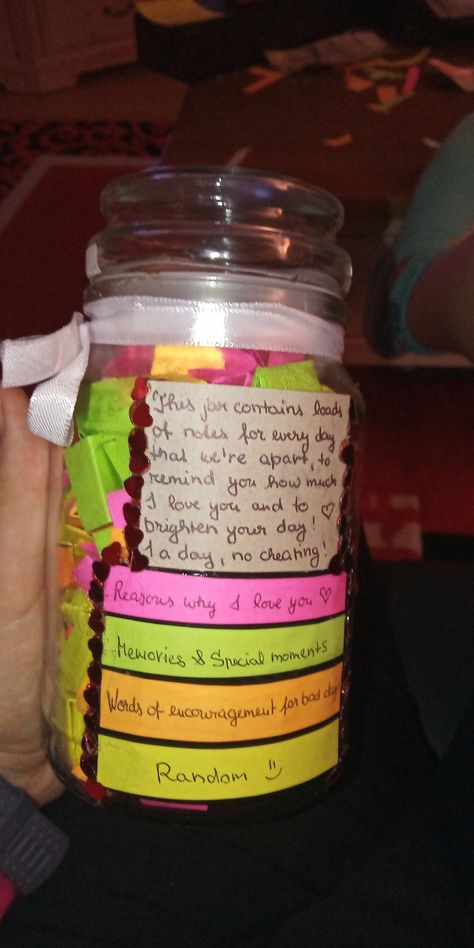 This jar contains loads
of notes for every day
that we're apart, to
remind you how much
I love you and to ♡
brighten your day!
1 a day, no cheating!
Reasons why I love you ♡
Memories & Special moments
Words of encouragement for bad days
Random :)